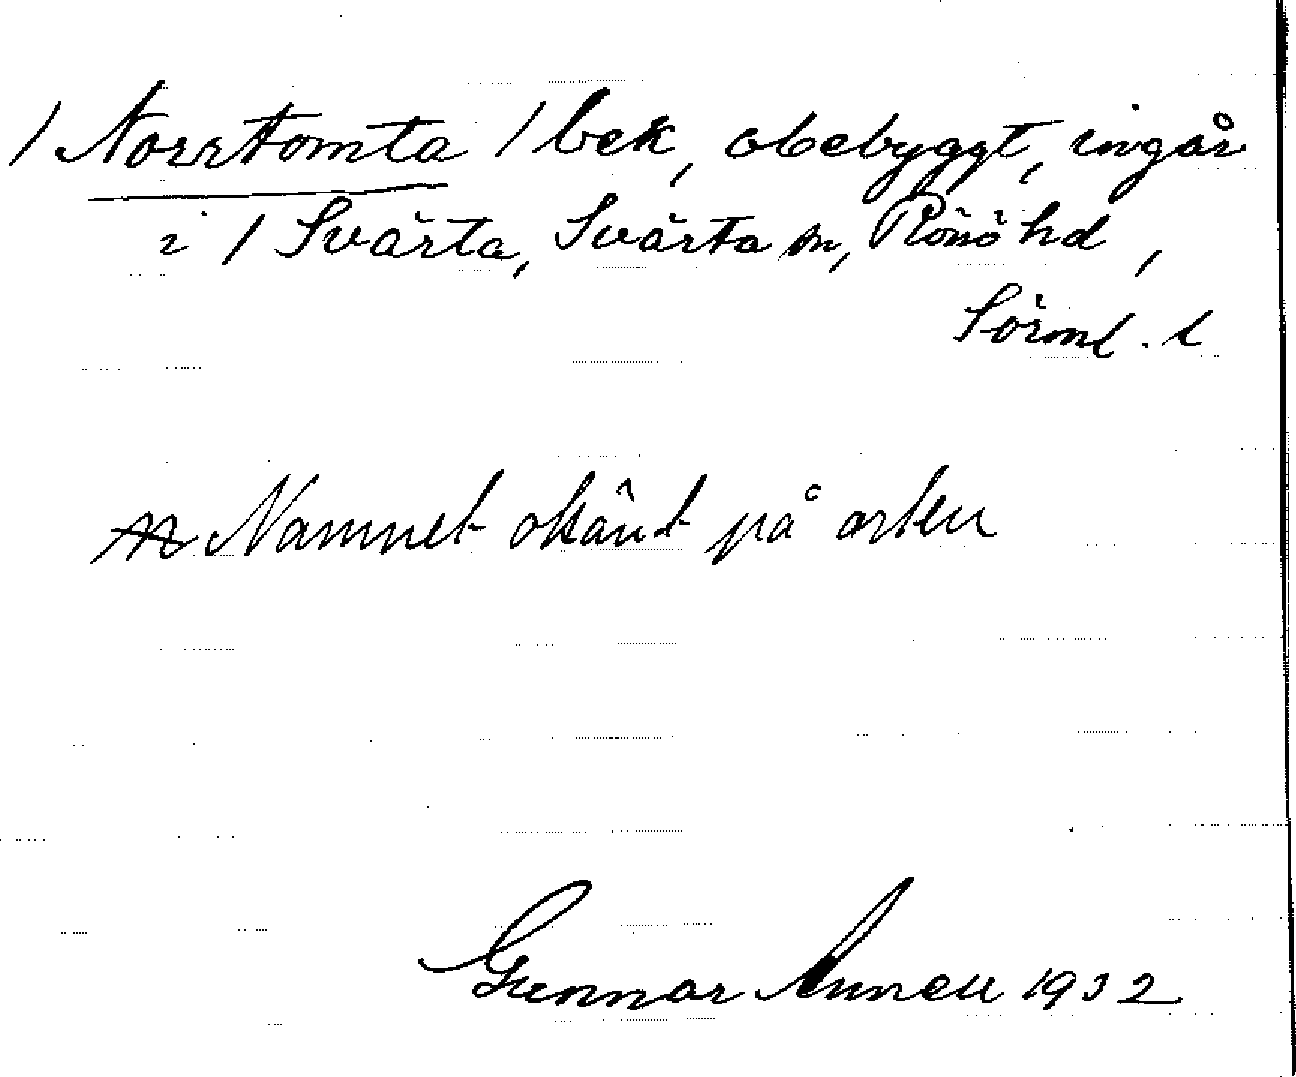 / Norrtomta / bek, obebyggt, ingår
i / Svärta, Svärta sn, Rönö hd,
Sörml. l
Namnet okänt på orten
Gunnar Annell 1932